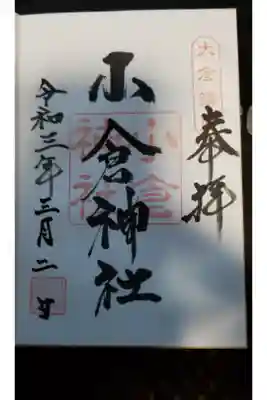 奉拝
小倉神社
小倉
神社
令和三年三月二日